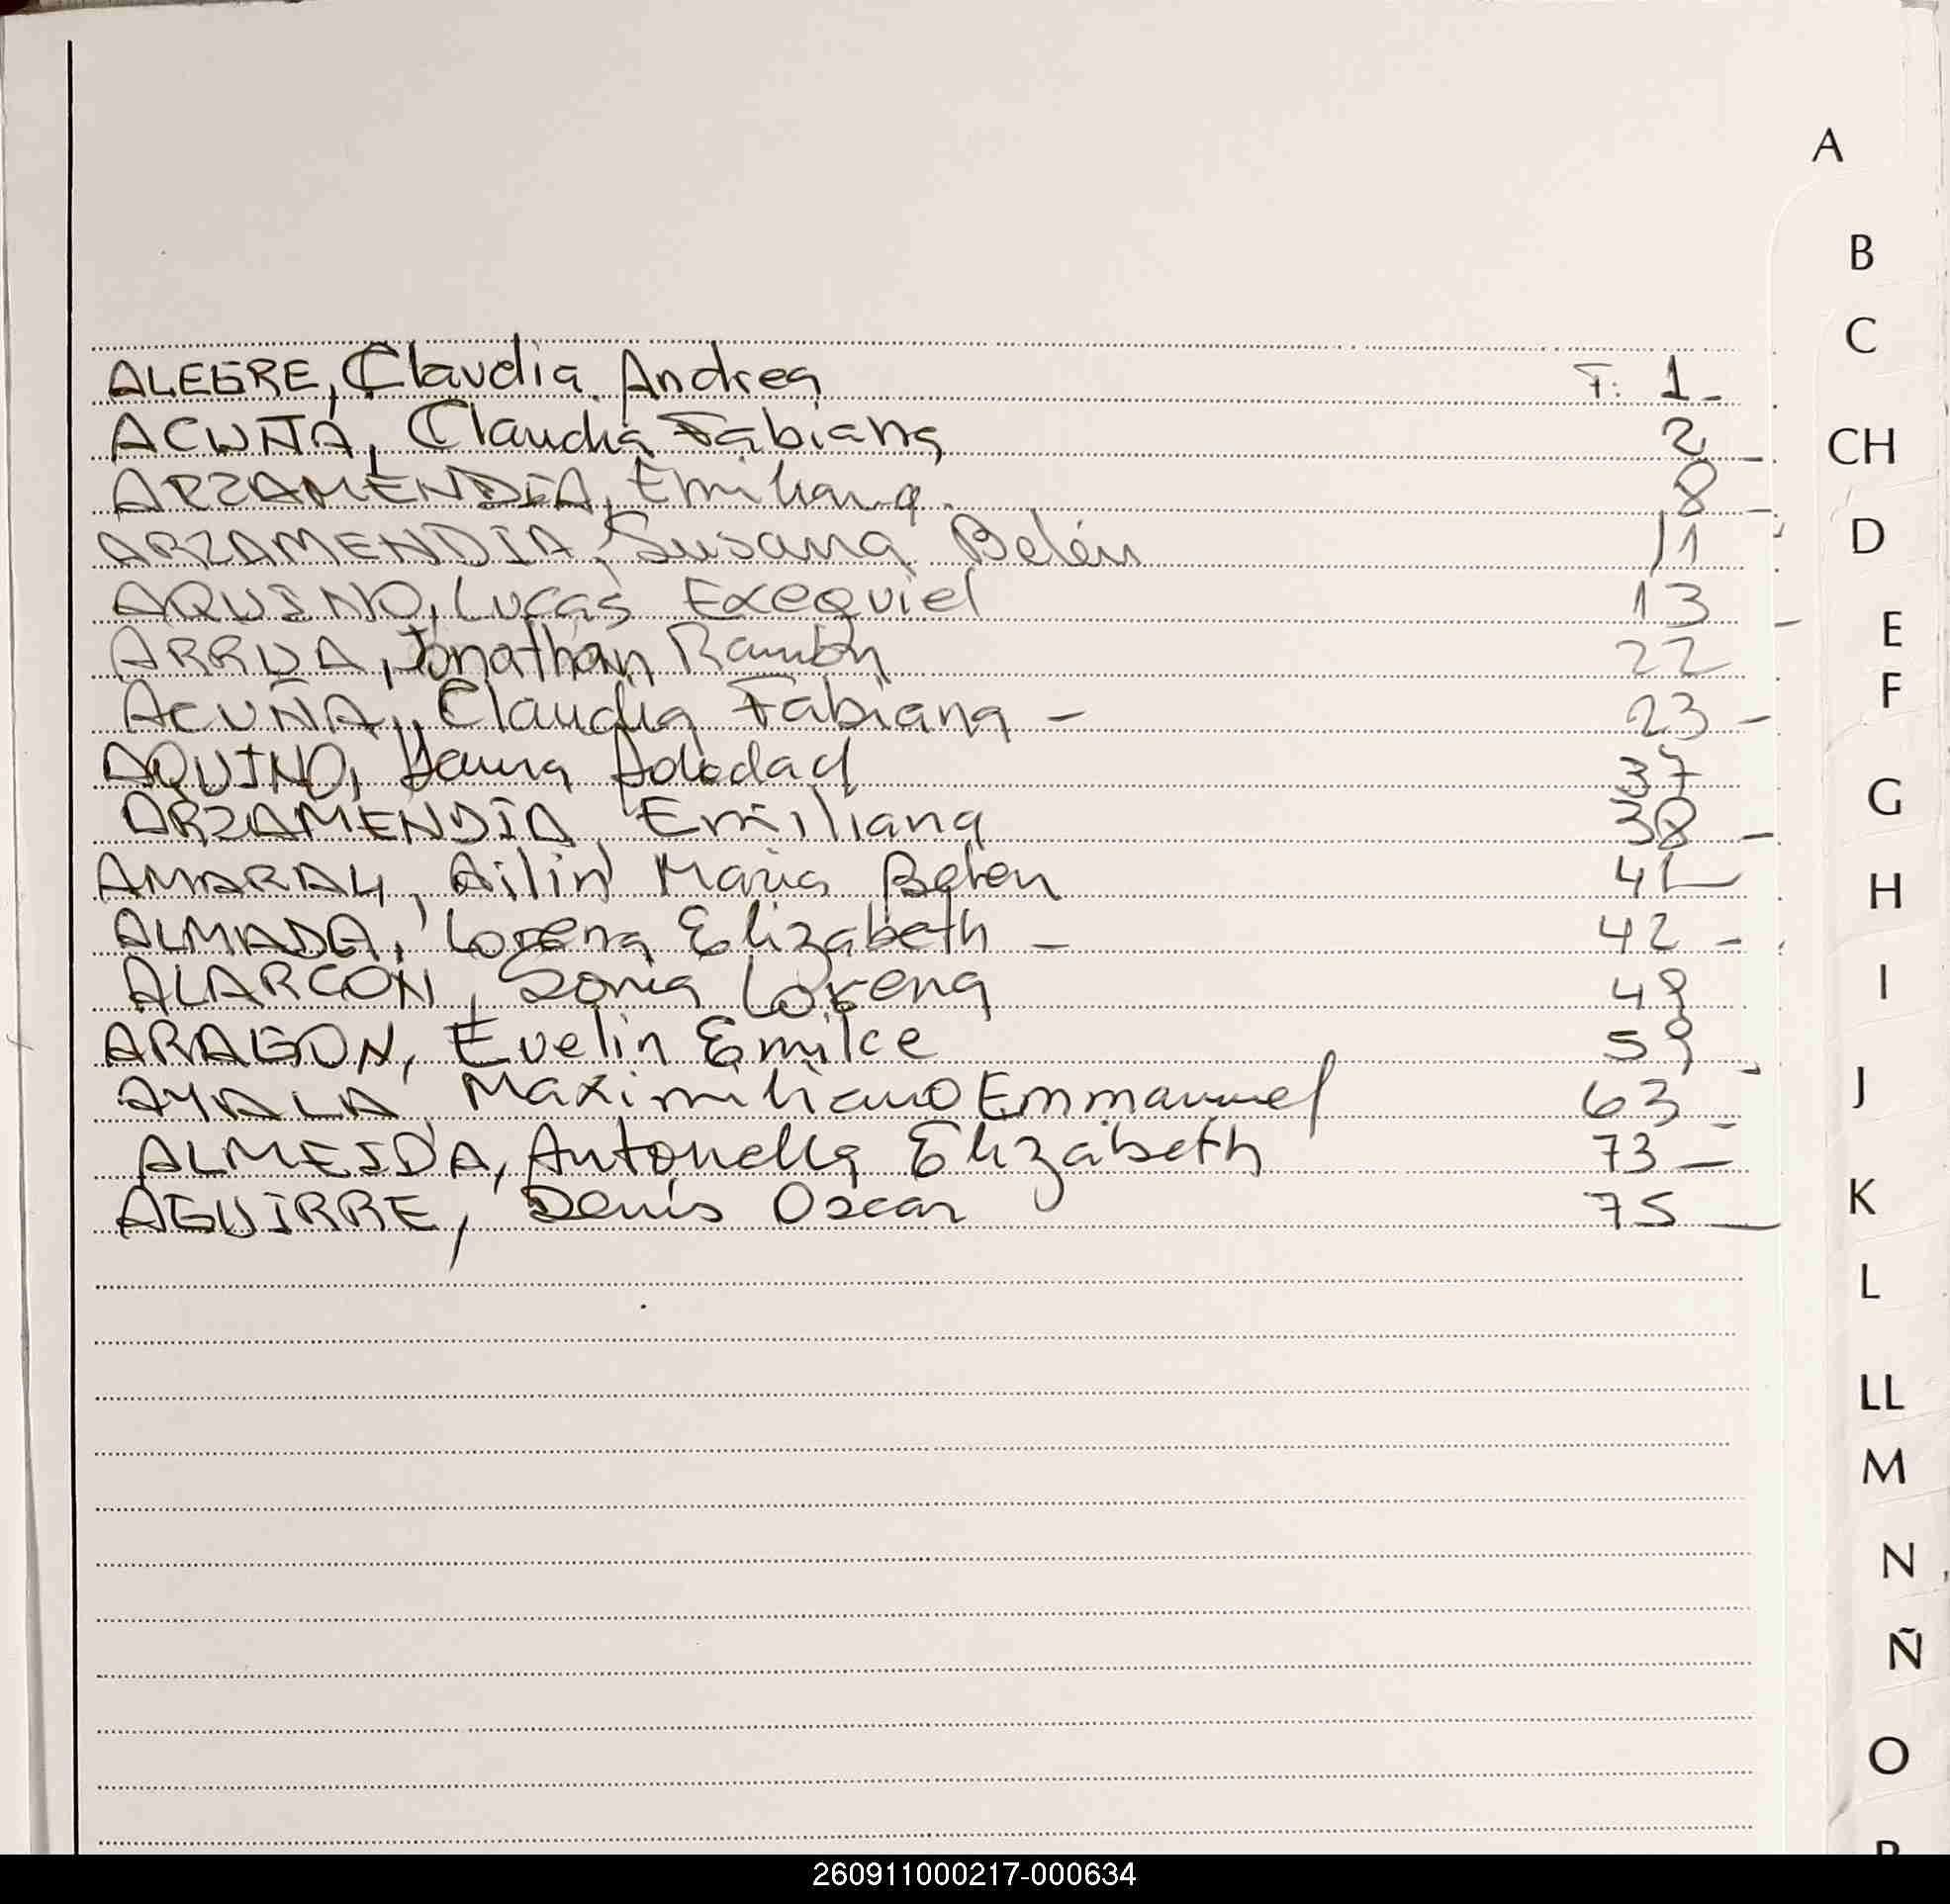 A
B
C
ALEGRE, Claudia Andrea F: 1_
ACUÑA, Claudia Fabiana 2 _
CH
ARZAMENDIA, Emiliana 8 _
ARZAMENDIA, Susana Belén 11
D
AQUINO, Lucas Exequiel 13 -
E
ARRUA, Jonathan Ramón 22
F
ACUÑA, Claudia Fabiana - 23 -
AQUINO, Soledad 37
G
ARZAMENDIA Emiliana 38 -
AMARAL, Ailin Maria Belen 41
H
ALMADA, Lorena Elizabeth - 42 -
I
ALARCON, Sonia Lorena 49
ARAGON, Evelin Emilce 59
J
AYALA Maximiliano Emmanuel 63 -
ALMEIDA, Antonella Elizabeth 73 -
K
AGUIRRE, Denis Oscar 75 _
L
LL
M
N
Ñ
O
260911000217-000634